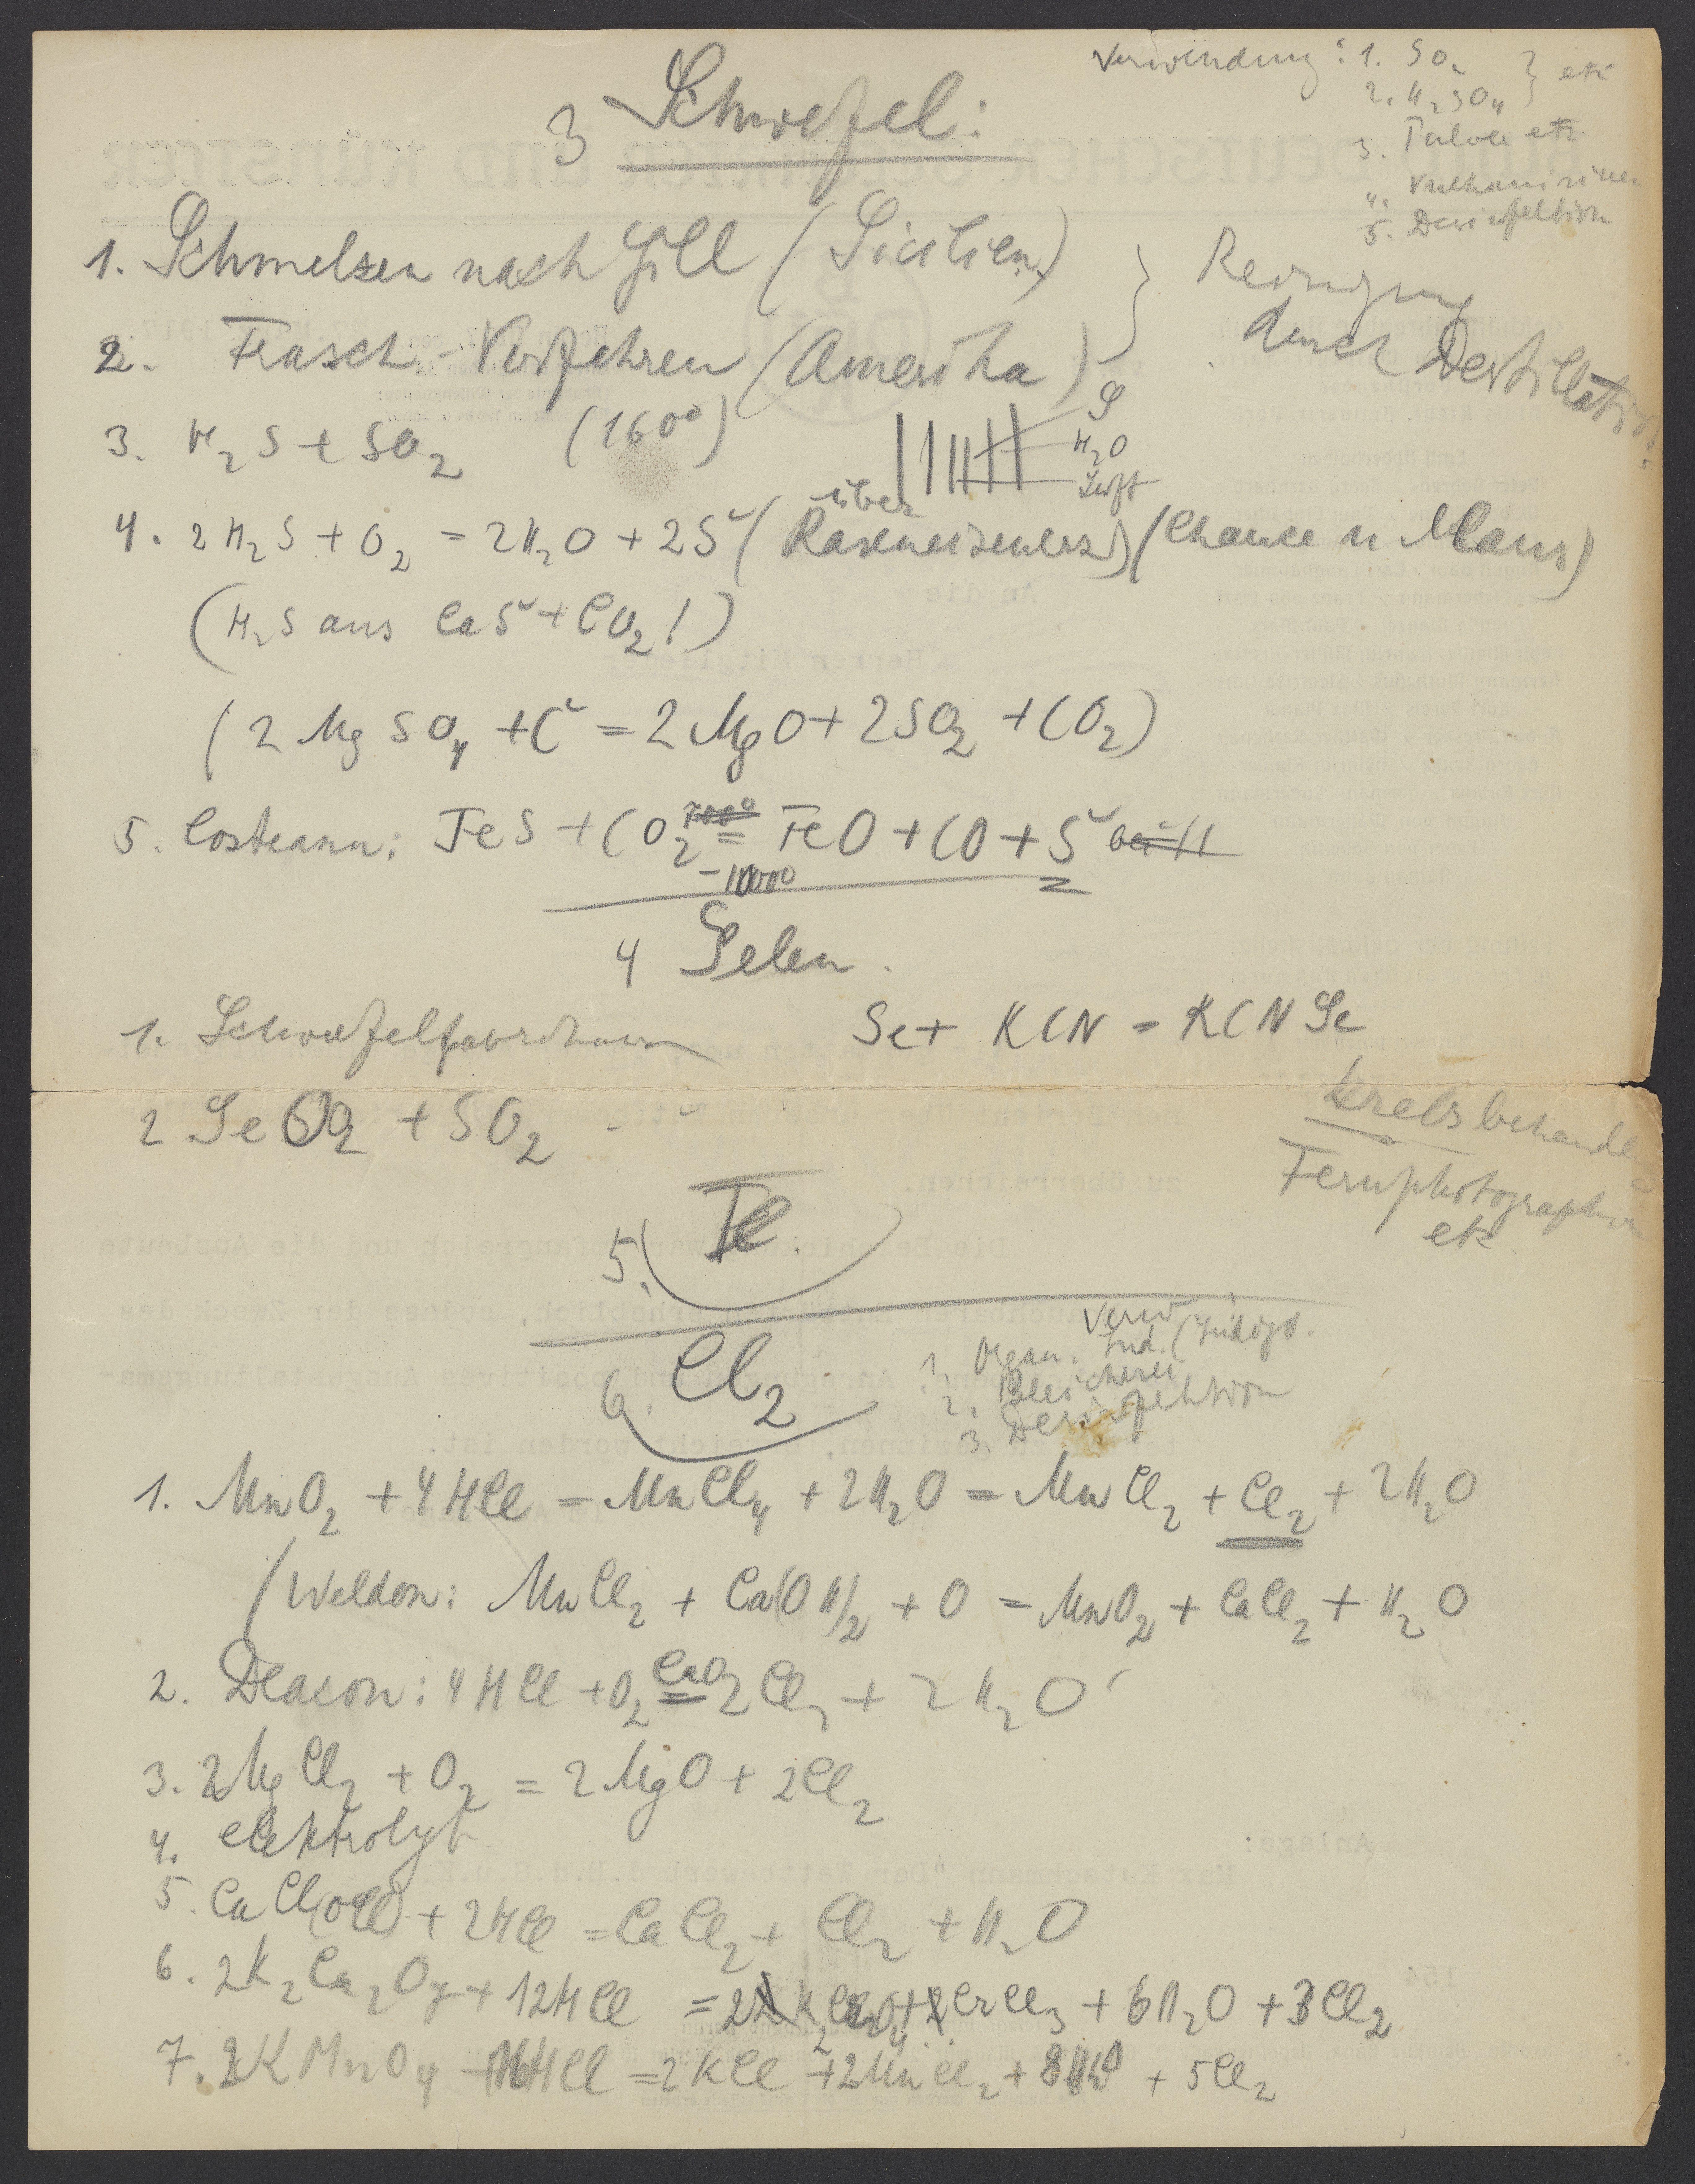 3 Schwefel:
Verwendung: 1. SO2 } etc
2. H2SO4
3. Pulver etc
4. Vulkanisieren
5. Desinfektion
1. Schmelzen nach Gill (Sicilien) } Reinigung
2. Frasch-Verfahren (Amerika) durch Destillation
3. H2S + SO2 (160°)
S
H2O
Luft
4. 2H2S + O2 = 2H2O + 2S (über Raseneisenerz) (Chance u Claus)
(H2S aus CaS + CO2!)
(2MgSO4 + C = 2MgO + 2SO2 + CO2)
5. Costeanu: FeS + CO2 = FeO + CO + S
-1000°
4 Selen.
1. Schwefelfabrikation Se + KCN = KCNSe
2 SeO2 + SO2
Krebsbehandlg
Fernphotographie
etc
5. Te.
6. Cl2
Verw
1. Organ. Ind. (Indigo.
2. Bleicherei
3. Desinfektion
1. MnO2 + 4HCl = MnCl4 + 2H2O = MnCl2 + Cl2 + 2H2O
(Weldon: MnCl2 + Ca(OH)2 + O = MnO2 + CaCl2 + H2O
2. Deacon: 4HCl + O2 = 2Cl2 + 2H2O
3. 2MgCl2 + O2 = 2MgO + 2Cl2
4. elektrolyt
5. CaCl(OCl) + 2HCl = CaCl2 + Cl2 + H2O
6. 2K2Cr2O7 + 12HCl = CrCl3 + 6H2O + 3Cl2
7. 2KMnO4 16HCl = 2KCl + 2MnCl2 + 8H2O + 5Cl2